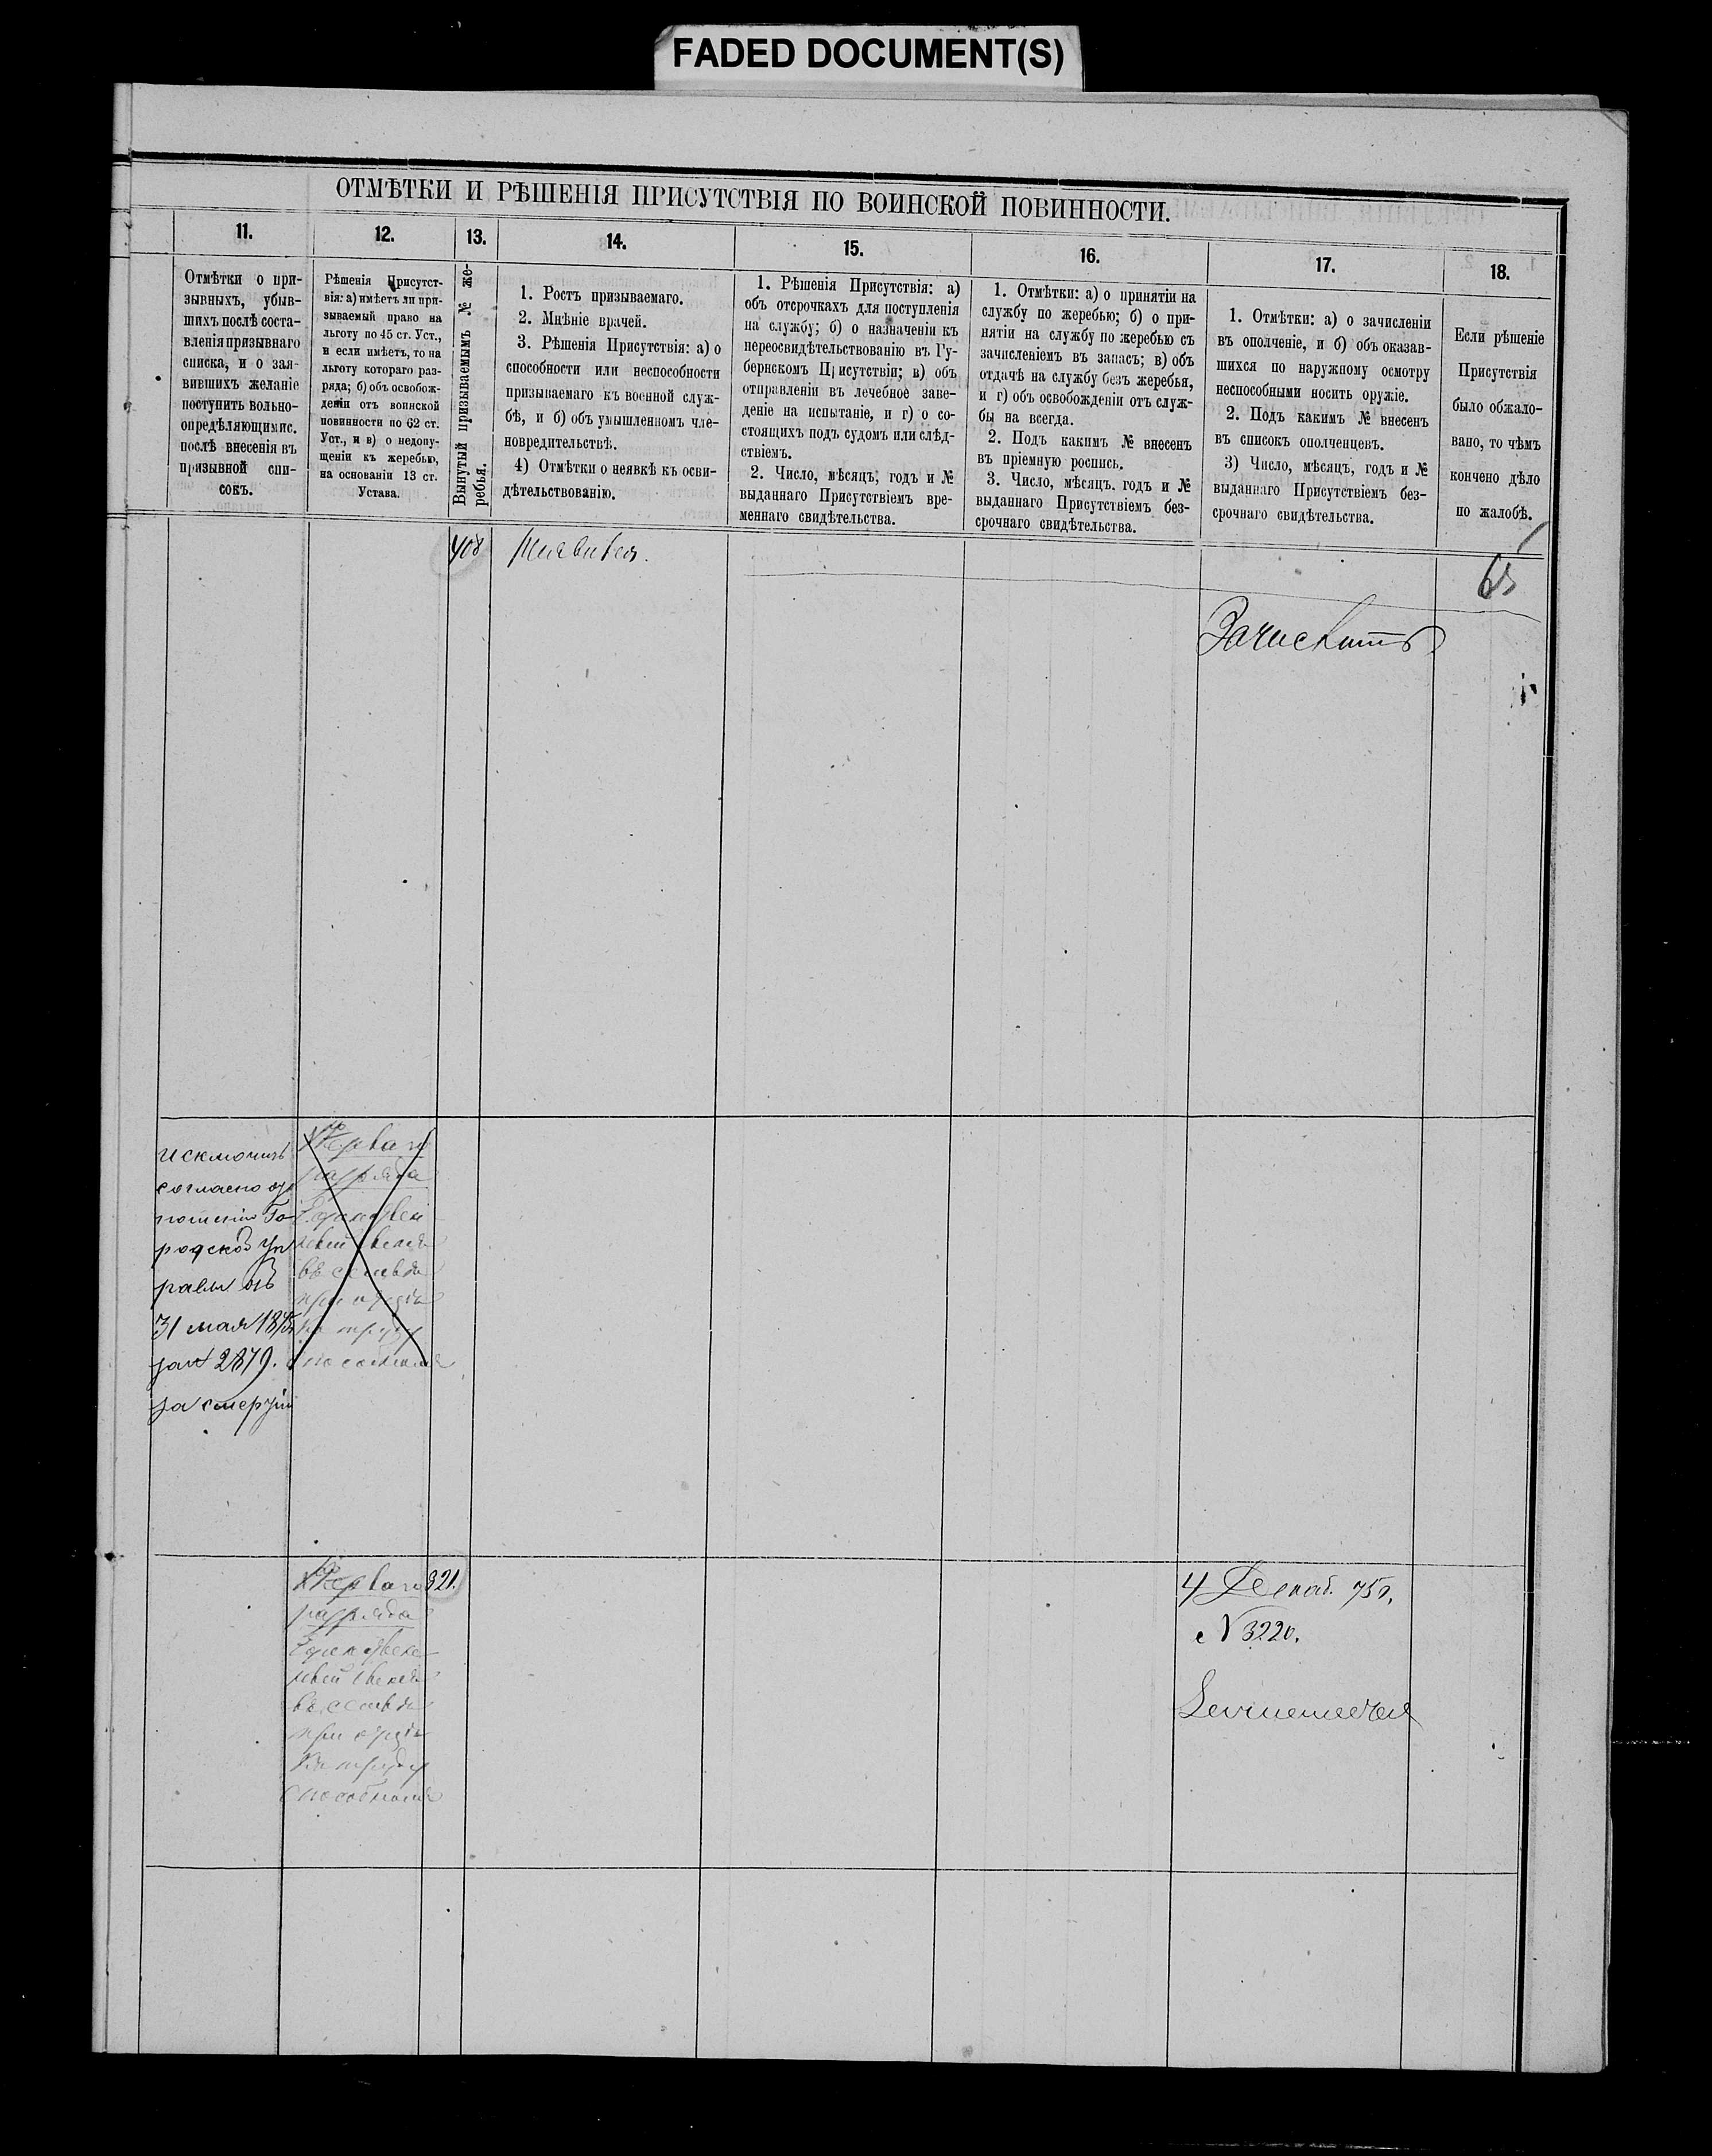 FADED DOCUMENT(S)
ОТМѢТКИ И РѢШЕНІЯ ПРИСУТСТВІЯ ПО ВОИНСКОЙ ПОВИННОСТИ.
11.
12.
13.
14.
15.
16.
17.
18.
Отмѣтки о при-
зывныхъ, убыв-
шихъ послѣ соста-
вленія призывнаго
списка, и о зая-
вившихъ желаніе
поступить вольно-
опредѣляющимис.
послѣ внесенія въ
призывной спи-
сокъ.
Рѣшенія Присутст-
вія: а) имѣетъ ли при-
зываемый право на
льготу по 45 ст. Уст.,
и если имѣетъ, то на
льготу котораго раз-
ряда; б) объ освобож-
деніи отъ воинской
повинности по 62 ст.
Уст., и в) о недопу-
щеніи къ жеребью,
на основаніи 13 ст.
Устава.
Вынутый призываемымъ № же-
ребья.
1. Ростъ призываемаго.
2. Мнѣніе врачей.
3. Рѣшенія Присутствія: а) о
способности или неспособности
призываемаго къ военной служ-
бѣ, и б) объ умышленномъ чле-
новредительствѣ.
4) Отмѣтки о неявкѣ къ осви-
дѣтельствованію.
1. Рѣшенія Присутствія: а)
объ отсрочкахъ для поступленія
на службу; б) о назначеніи къ
переосвидѣтельствованію въ Гу-
бернскомъ Присутствіи; в) объ
отправленіи въ лечебное заве-
деніе на испытаніе, и г) о со-
стоящихъ подъ судомъ или слѣд-
ствіемъ.
2. Число, мѣсяцъ, годъ и №
выданнаго Присутствіемъ вре-
меннаго свидѣтельства.
1. Отмѣтки: а) о принятіи на
службу по жеребью; б) о при-
нятіи на службу по жеребью съ
зачисленіемъ въ запасъ; в) объ
отдачѣ на службу безъ жеребья,
и г) объ освобожденіи отъ служ-
бы на всегда.
2. Подъ какимъ № внесенъ
въ пріемную роспись.
3. Число, мѣсяцъ. годъ и №
выданнаго Присутствіемъ без-
срочнаго свидѣтельства.
1. Отмѣтки: а) о зачисленіи
въ ополченіе, и б) объ оказав-
шихся по наружному осмотру
неспособными носить оружіе.
2. Подъ какимъ № внесенъ
въ списокъ ополченцевъ.
3) Число, мѣсяцъ, годъ и №
выданнаго Присутствіемъ без-
срочнаго свидѣтельства.
Если рѣшеніе
Присутствія
было обжало-
вано, то чѣмъ
кончено дѣло
по жалобѣ.
408
65
Зачислить
согласно
ношенію Го-
родской Уп
равы отъ
31 мая
2879.
за смертію
Перваго
разряда
въ семьѣ
при отцѣ
къ труду
Перваго
321.
разряда
въ семьѣ
при отцѣ
къ труду
способномъ
4 Декаб. 75 г.
№ 3220.